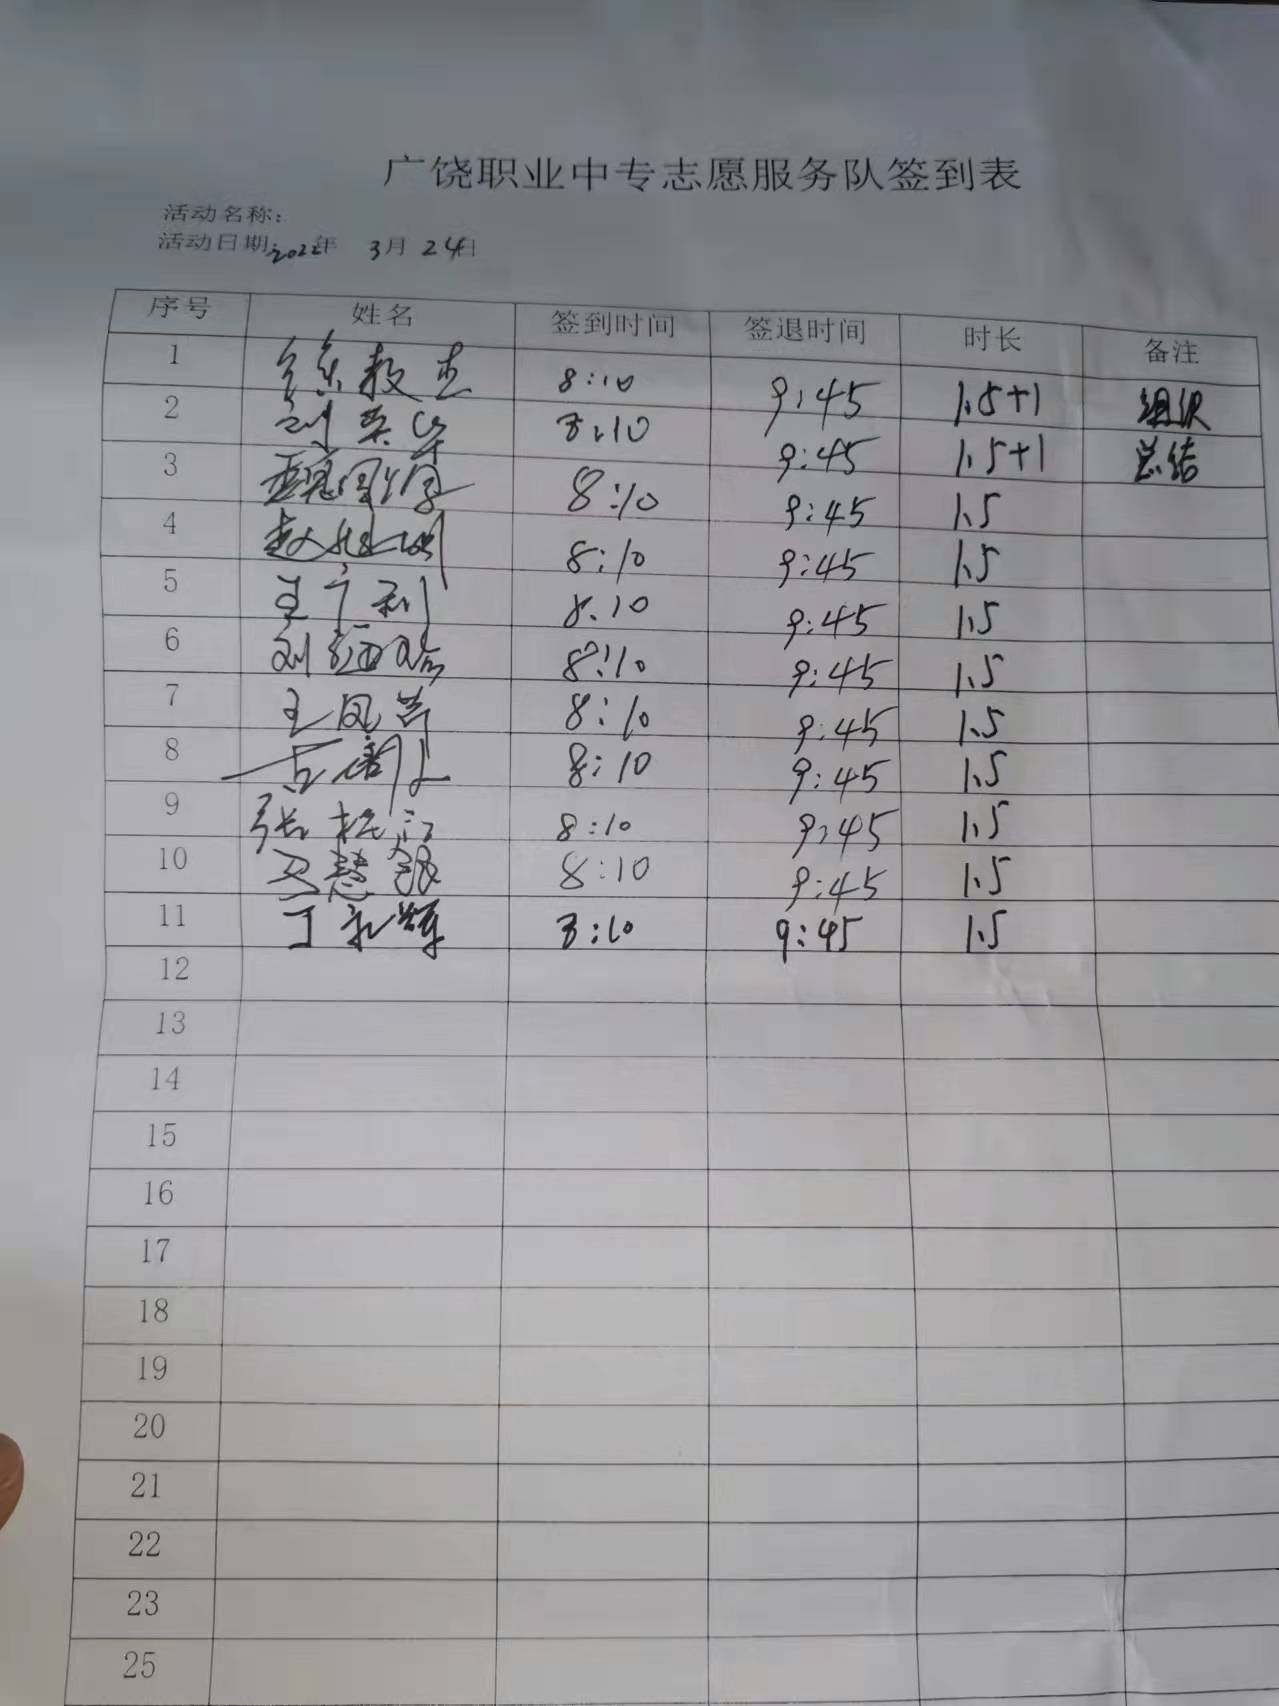 广饶职业中专志愿服务队签到表
活动名称:
活动日期:2022年 3月 24日
序号 姓名 签到时间 签退时间 时长 备注
1 8:10 9:45 1.5+1 组织
2 刘英华 8:10 9:45 1.5+1 总结
3 8:10 9:45 1.5
4 赵 8:10 9:45 1.5
5 王 利 8:10 9:45 1.5
6 刘 8:10 9:45 1.5
7 王凤兰 8:10 9:45 1.5
8 8:10 9:45 1.5
9 张 江 8:10 9:45 1.5
10 慧敏 8:10 9:45 1.5
11 丁永辉 8:10 9:45 1.5
12
13
14
15
16
17
18
19
20
21
22
23
25